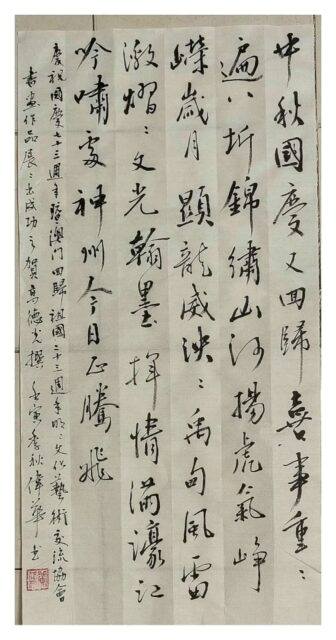 中秋國慶又回歸喜事重〻
遍八圻錦繡山河揚虎氣崢
嶸歲月顯龍威泱〻禹甸風雷
激熠〻文光翰墨揮情滿濠江
吟嘯處神州今日正騰飛
慶祝國慶七十三週年暨澳門回歸祖國二十三週年文化藝術交流協會
書畫作品展〻出成功之賀德光撰壬寅季秋偉華書